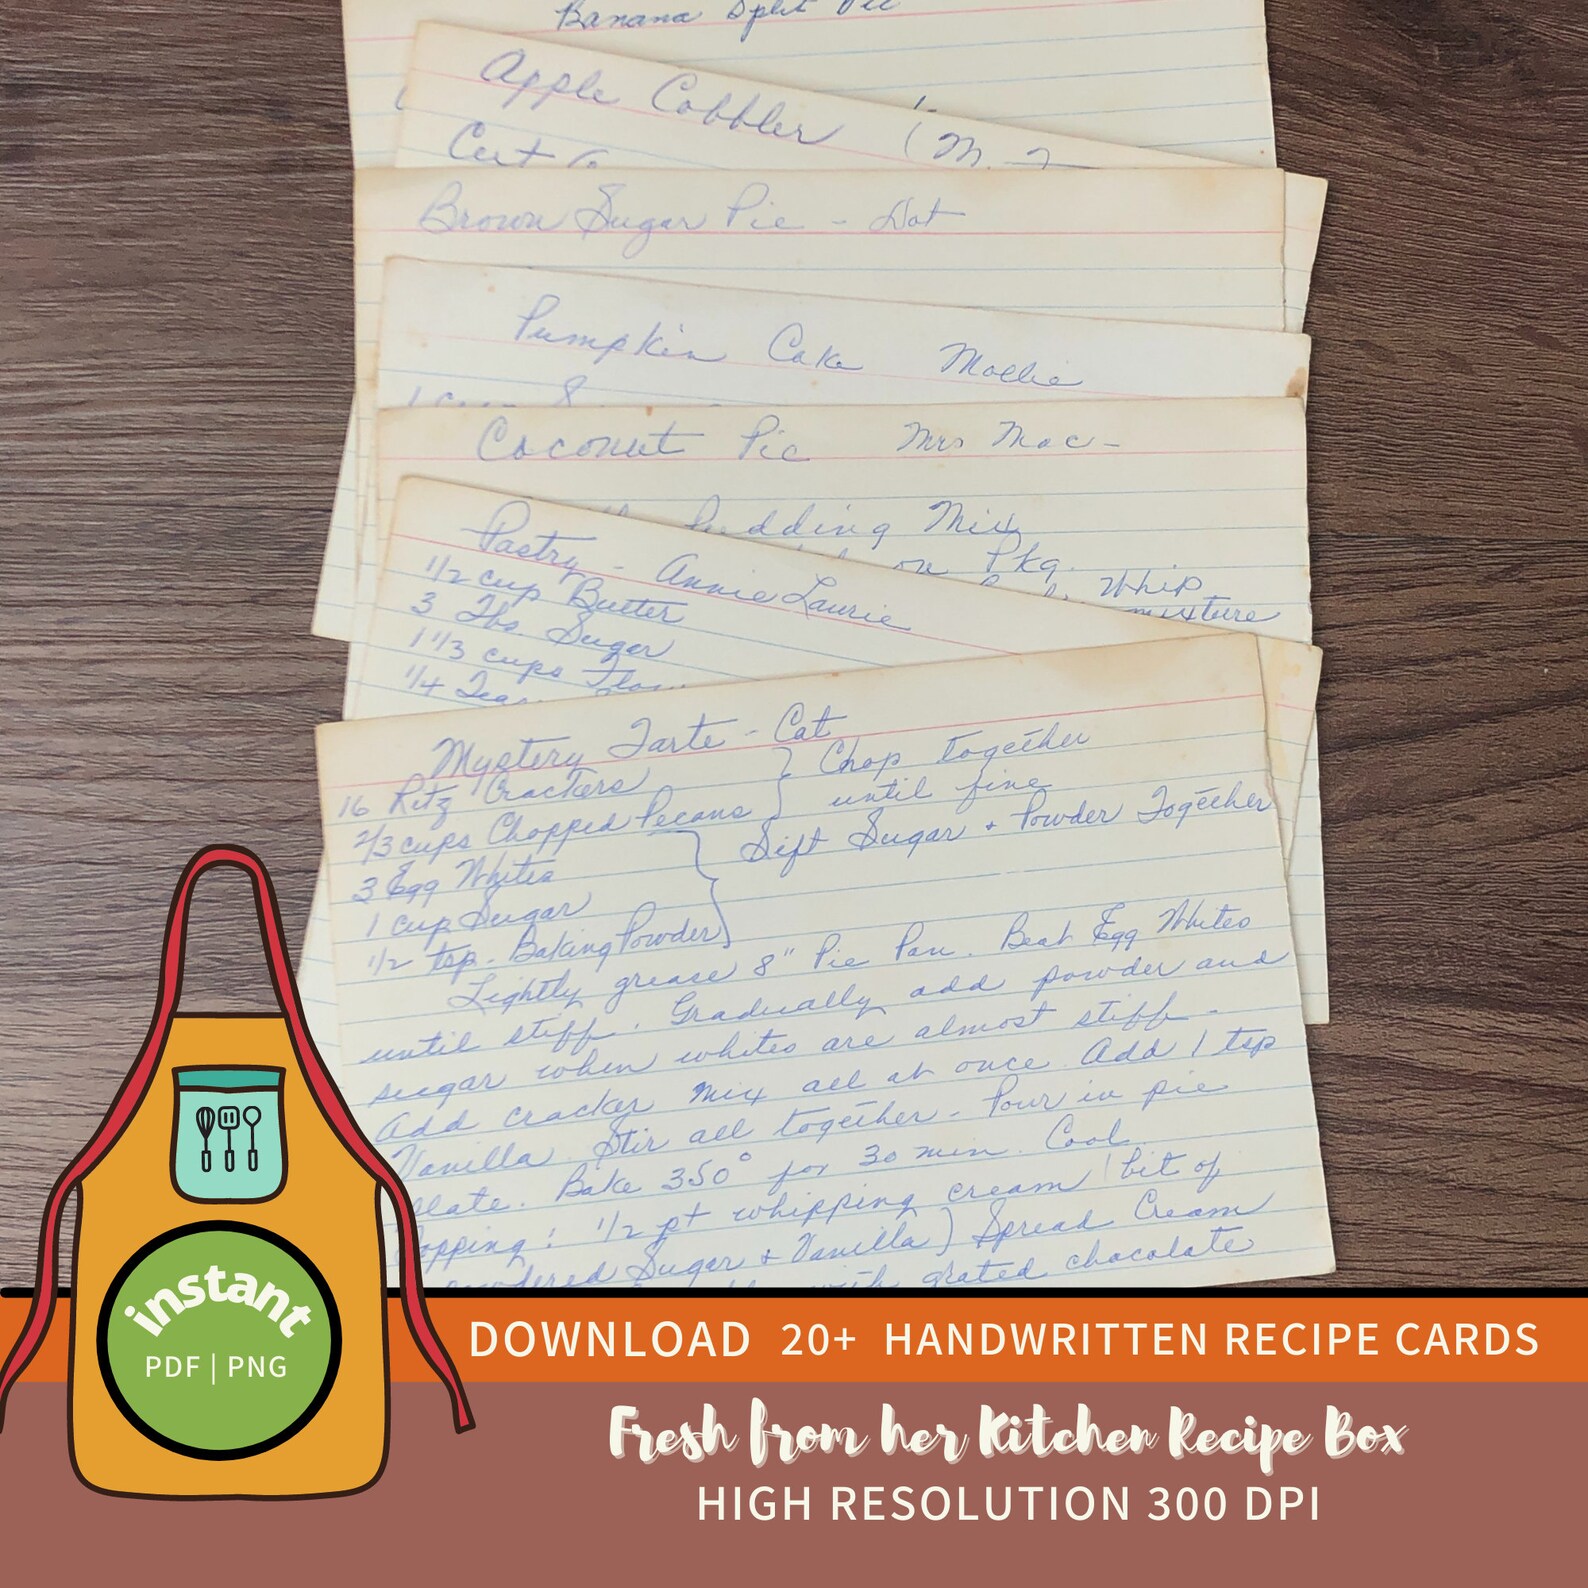 Banana Split Pie
Apple Cobbler (M.
Cut
Brown Sugar Pie - Dot
Pumpkin Cake Mollie
1 cup
Coconut Pie Mrs Mac-
Pudding Mix
on Pkg.
Whip
mixture
Pastry - Annie Laurie
1/2 cup Butter
3 Tbs. Sugar
1 1/3 cups
1/4
Mystery Tarte - Cat
16 Ritz Crackers } Chop together
2/3 cups Chopped Pecans } until fine
3 Egg Whites } Sift Sugar + Powder Together
1 cup Sugar
1/2 tsp. Baking Powder
Lightly grease 8" Pie Pan. Beat Egg Whites
until stiff. Gradually add powder and
sugar when whites are almost stiff -
Add cracker mix all at once. Add 1 tsp
Vanilla. Stir all together - Pour in pie
plate. Bake 350° for 30 min. Cool.
Topping: 1/2 pt whipping cream (bit of
powdered Sugar + Vanilla) Spread Cream
with grated chocolate
instant
PDF | PNG
DOWNLOAD 20+ HANDWRITTEN RECIPE CARDS
Fresh from her Kitchen Recipe Box
HIGH RESOLUTION 300 DPI